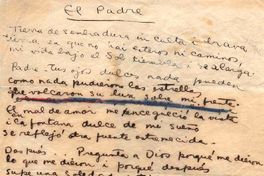 El Padre
Tierra de sembradura inculta i brava
tierra en que no hai esteros ni caminos,
mi vida bajo el Sol tiembla i se alarga.
Padre, tus ojos dulces nada pueden
como nada pudieron las estrellas
que
su luz
mi frente.
El mal de amor me encegueció la vista
en la fontana dulce de mi sueño
se reflejó otra fuente estremecida,
Después
Pregunta a Dios porque me dieron
lo que me dieron i porqué después
supe una Soledad